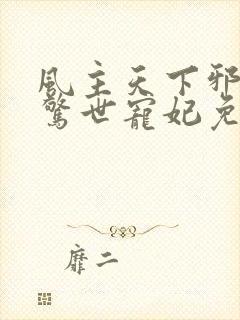 风主天下邪
惊世宠妃免
靡二